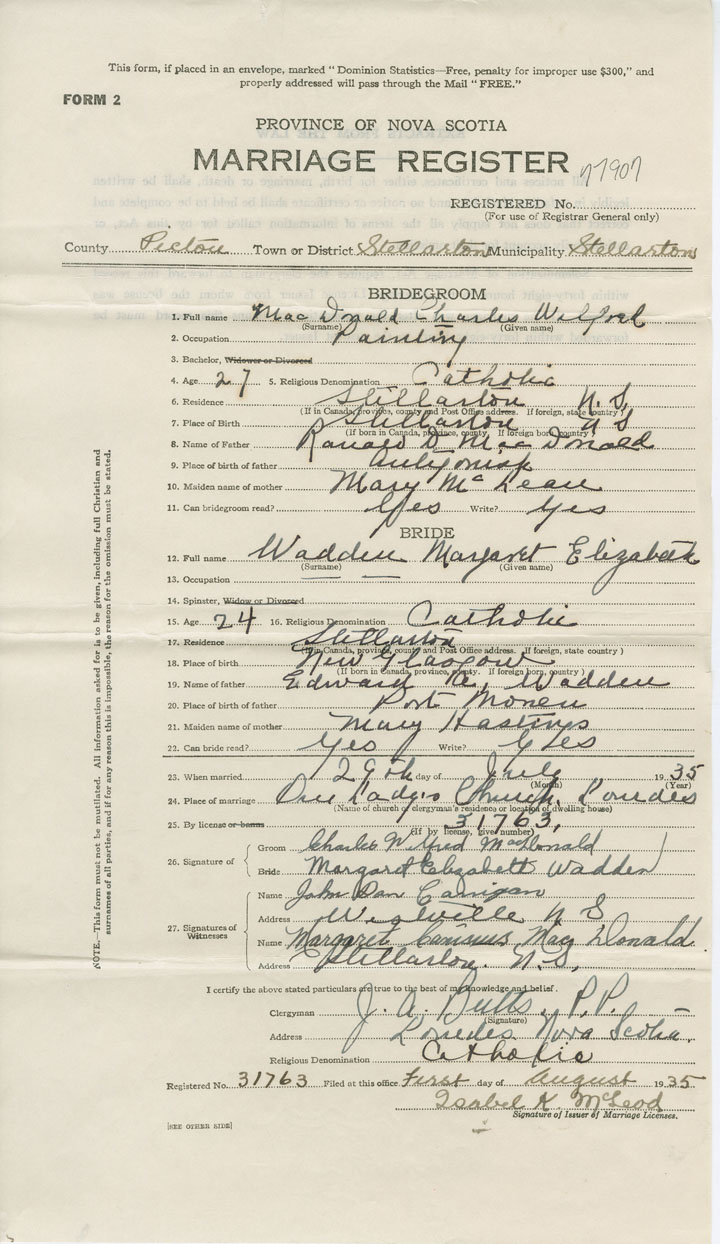 This form, if placed in an envelope, marked " Dominion Statistics—Free, penalty for improper use $300," and
properly addressed will pass through the Mail "FREE."
FORM 2
PROVINCE OF NOVA SCOTIA
MARRIAGE REGISTER 77907
REGISTERED No.
(For use of Registrar General only)
County Pictou Town or District Stellarton Municipality Stellarton
BRIDEGROOM
1. Full name Mac Donald Charles Wilfred
(Surname) (Given name)
2. Occupation Painting
3. Bachelor, Widower or Divorced
4. Age 27 5. Religious Denomination Catholic
6. Residence Stellarton N.S
(If in Canada, province, county and Post Office address. If foreign, state country )
7. Place of Birth Stellarton N S
(If born in Canada, province, county. If foreign born, country )
8. Name of Father Ranald D Mac Donald
9. Place of birth of father Antigonish
10. Maiden name of mother Mary McLean
11. Can bridegroom read? Yes Write? Yes
BRIDE
12. Full name Wadden Margaret Elizabeth
(Surname) (Given name)
13. Occupation
14. Spinster, Widow or Divorced
15. Age 24 16. Religious Denomination Catholic
17. Residence Stellarton
(If in Canada, province, county and Post Office address. If foreign, state country )
18. Place of birth New Glasgow
(If born in Canada, province, county. If foreign born, country )
19. Name of father Edward Wadden
20. Place of birth of father Port Morien
21. Maiden name of mother Mary Hastings
22. Can bride read? Yes Write? Yes
23. When married 29th day of July 1935
(Month) (Year)
24. Place of marriage Our Lady's Church, Lourdes
(Name of church or clergyman's residence or location of dwelling house)
25. By license or banns 31763,
(If by license, give number)
26. Signature of
Groom Charles Wilfred MacDonald
Bride Margaret Elizabeth Wadden
27. Signatures of Witnesses
Name John Dan Carrigan
Address Westville N S
Name Margaret MacDonald
Address Stellarton. N.S,
I certify the above stated particulars are true to the best of my knowledge and belief.
Clergyman J. A. Butts, P.P.
(Signature)
Address Lourdes Nova Scotia.
Religious Denomination Catholic
Registered No. 31763 Filed at this office First day of August 1935
Isabel K. McLeod
Signature of Issuer of Marriage Licenses.
[SEE OTHER SIDE]
NOTE.—This form must not be mutilated. All information asked for is to be given, including full Christian and
surnames of all parties, and if for any reason this is impossible, the reason for the omission must be stated.